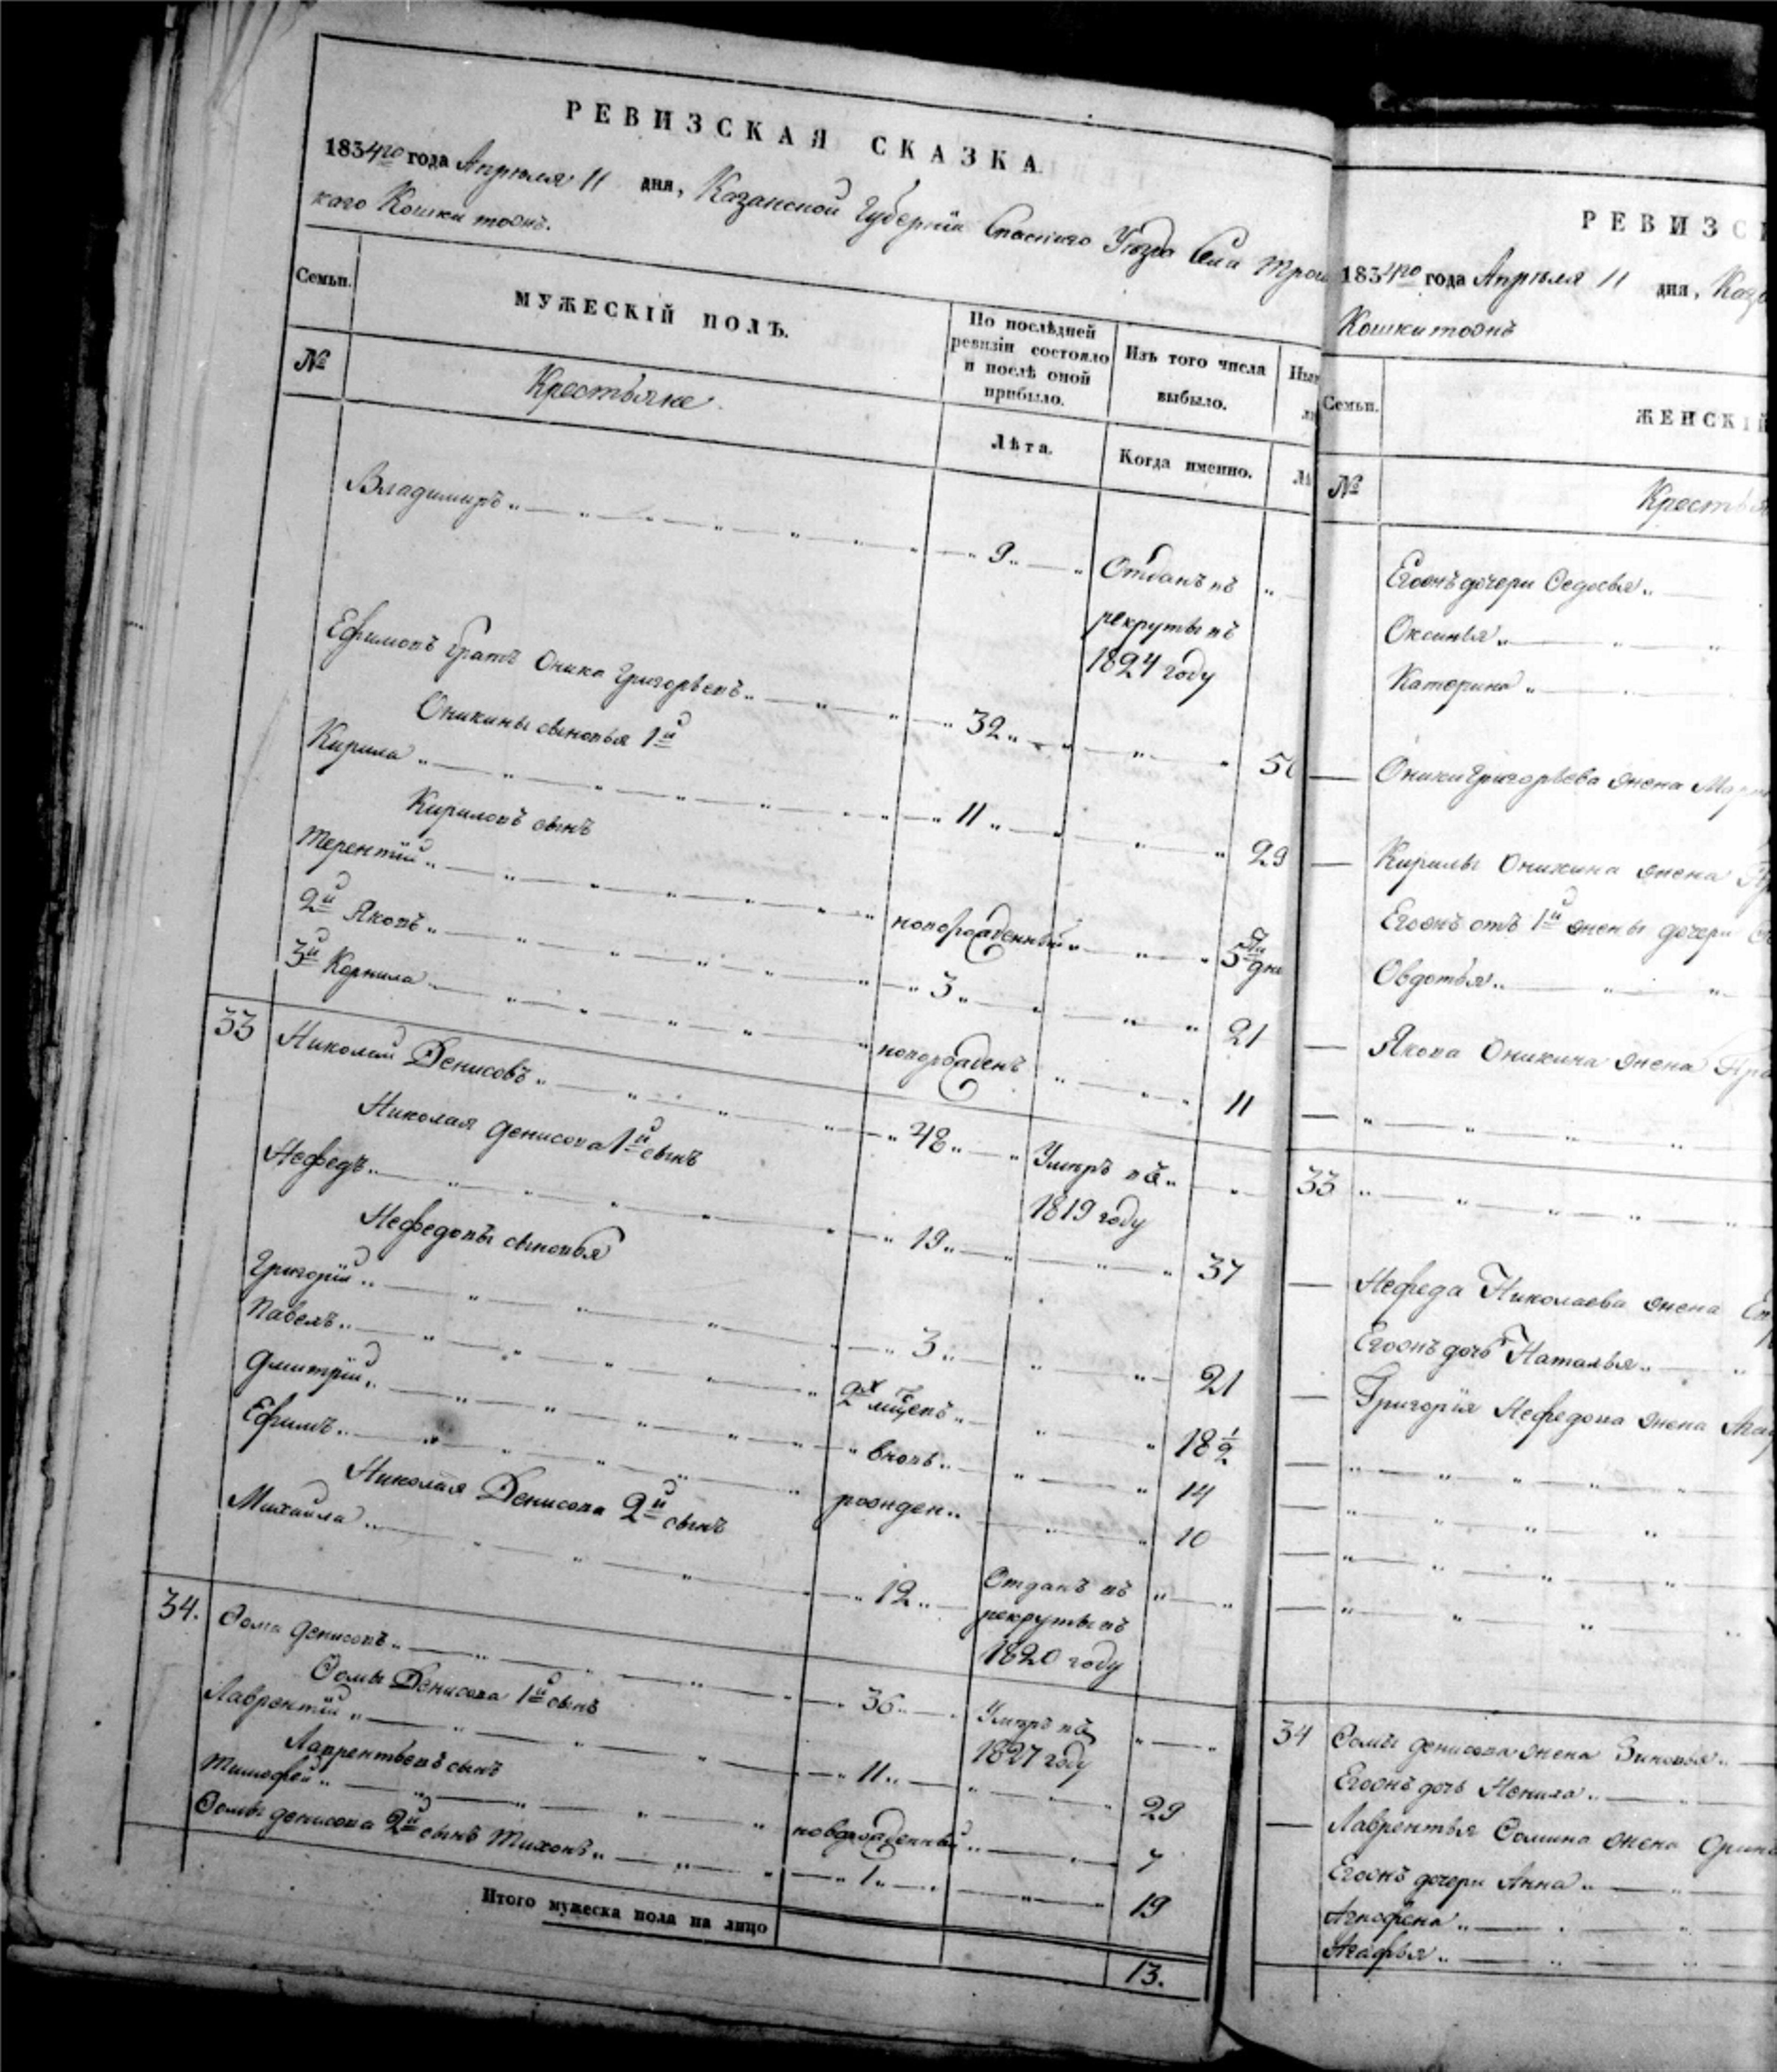 РЕВИЗСКАЯ СКАЗКА
1834го года Апреля 11 дня, Казанской Губернiи Спаскаго Уезда Села Троиц
каго Кошки тожъ.
Семьи. МУЖЕСКIЙ ПОЛЪ. По послѣдней ревизiи состояло и послѣ оной прибыло. Изъ того числа выбыло. Ны
№ Крестьяне Лѣта. Когда именно. Лѣ
Владимиръ 9 Отданъ въ
рекруты въ
1824 году
Ефимовъ братъ Оника Григорьевъ 32
Оникины сыновья 1й
Кирила 11 29
Кириловъ сынъ
Терентiй новорожденный 5 дне
2й Яковъ 3 21
3й Корнила новорожденъ 11
33 Николай Денисовъ 48 Умеръ въ
1819 году
Николая Денисова 1й сынъ
Нефедъ 19 37
Нефедовы сыновья
Григорiй 3 21
Павелъ 2х мцевъ 18 1/2
Дмитрiй вновь 14
Ефимъ рожден 10
Николая Денисова 2й сынъ
Михайла 12 Отданъ въ
рекруты въ
1820 году
34. Фома Денисовъ 36 Умеръ въ
1827 году
Фомы Денисова 1й сынъ
Лаврентiй 11 29
Лаврентьевъ сынъ
Тимофей новорожденный 7
Фомы Денисова 2й сынъ Тихонъ 1 19
Итого мужеска пола на лицо 13.
РЕВИЗС
1834го года Апреля 11 дня, Каз
Кошки тожъ
Семьи. ЖЕНСКIЙ
№ Крестья
Егожъ дочери Федосья
Оксинья
Катерина
Оники Григорьева жена Мар
Кирилы Оникина жена
Егожъ отъ 1й жены дочери
Овдотья
Якова Оникина жена Пра
33
Нефеда Николаева жена
Егожъ дочь Наталья
Григорiя Нефедова жена
34 Фомы Денисова жена Зиновья
Егожъ дочь Ненила
Лаврентья Фомина жена Орин
Егожъ дочери Анна
Агафья